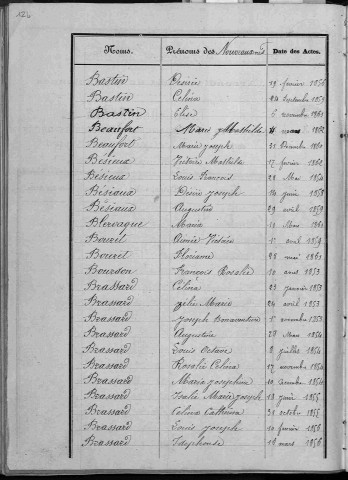 Noms. Prénoms des Nouveaux-nés Date des Actes.
Bastin Désirée 19 février 1856
Bastin Célina 24 Septembre 1859
Bastin Elise 5 novembre 1861
Beaufort Marie Mathilde mars 1862
Beaufort Marie Joseph 31 Décembre 1860
Bésieux Victoire Mathilde 17 février 1862
Bésieux Louis François 28 Mai 1854
Bésieux Désiré Joseph 14 juin 1858
Bésieux Augustine 29 avril 1859
Blervaque Maria 11 Mai 1861
Bouret Aimée 1er avril 1859
Bouret Floriame 23 mai 1861
Bourdon François Rosalie 10 août 1853
Brassard Célina 23 janvier 1853
Brassard Zélie Marie 24 avril 1853
Brassard Joseph Bonaventure 1er novembre 1853
Brassard Augustine 29 Mai 1854
Brassard Louis Octave 2 juillet 1854
Brassard Rosalie Célina 17 novembre 1854
Brassard Maria Joséphine 10 décembre 1854
Brassard Isalie Marie Joseph 13 juin 1855
Brassard Célina Catherine 31 octobre 1855
Brassard Louis Joseph 10 février 1856
Brassard Idephonse 19 mars 1856